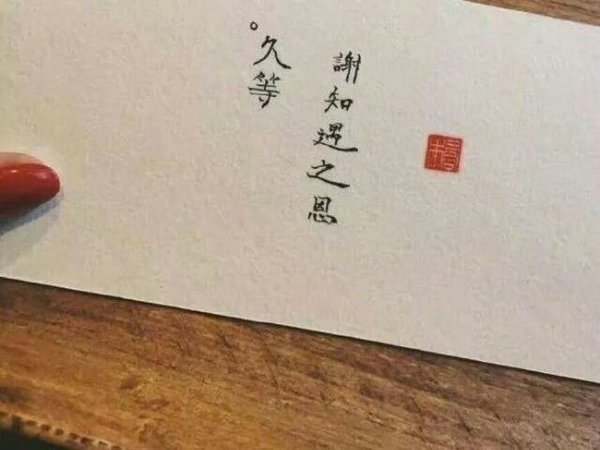 謝知遇之恩
。久等